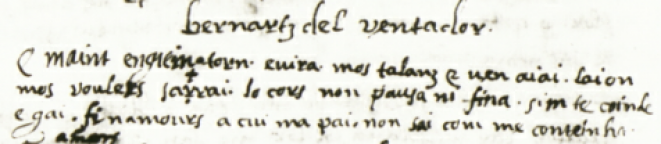 bernartz del ventador.
E maint engienatorn. evira. mos talanz e ven aiai. laion
mos voulers sarrai. lo cors non pausa ni fina. sim te coinde
e gai. finamours a cui ma pai. non sai com me conteinha.
amors